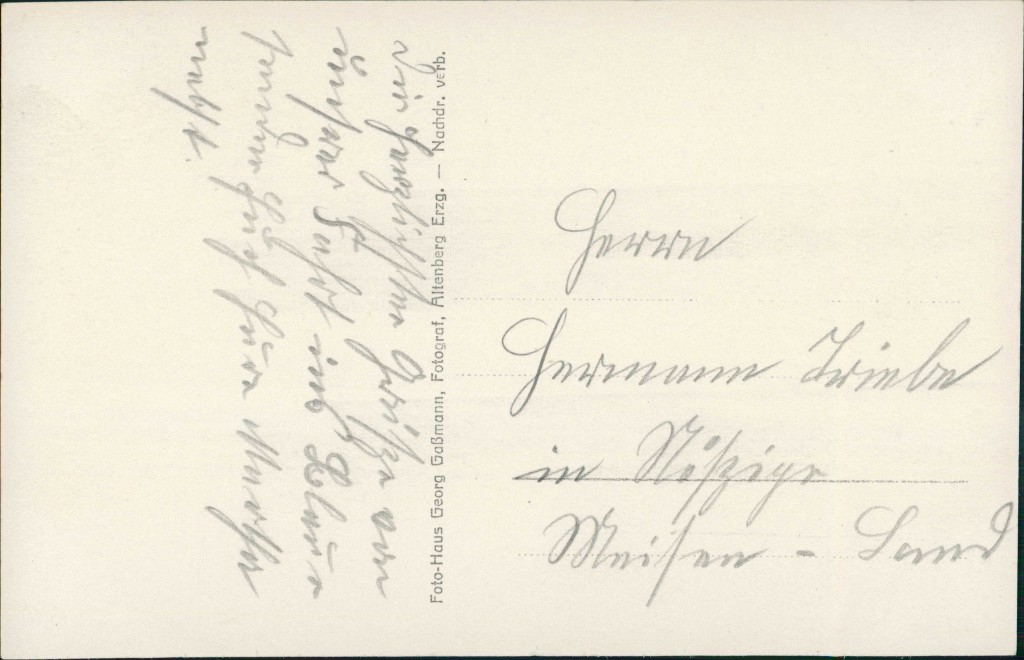 Die herzlichsten Grüße von
unserer Fahrt ins Blaue
sendet Euch Eure Martha
nebst
Foto-Haus Georg Gaßmann, Fotograf, Altenberg Erzg. — Nachdr. verb.
Herrn
Hermann Triebe
in
Meisen - Land